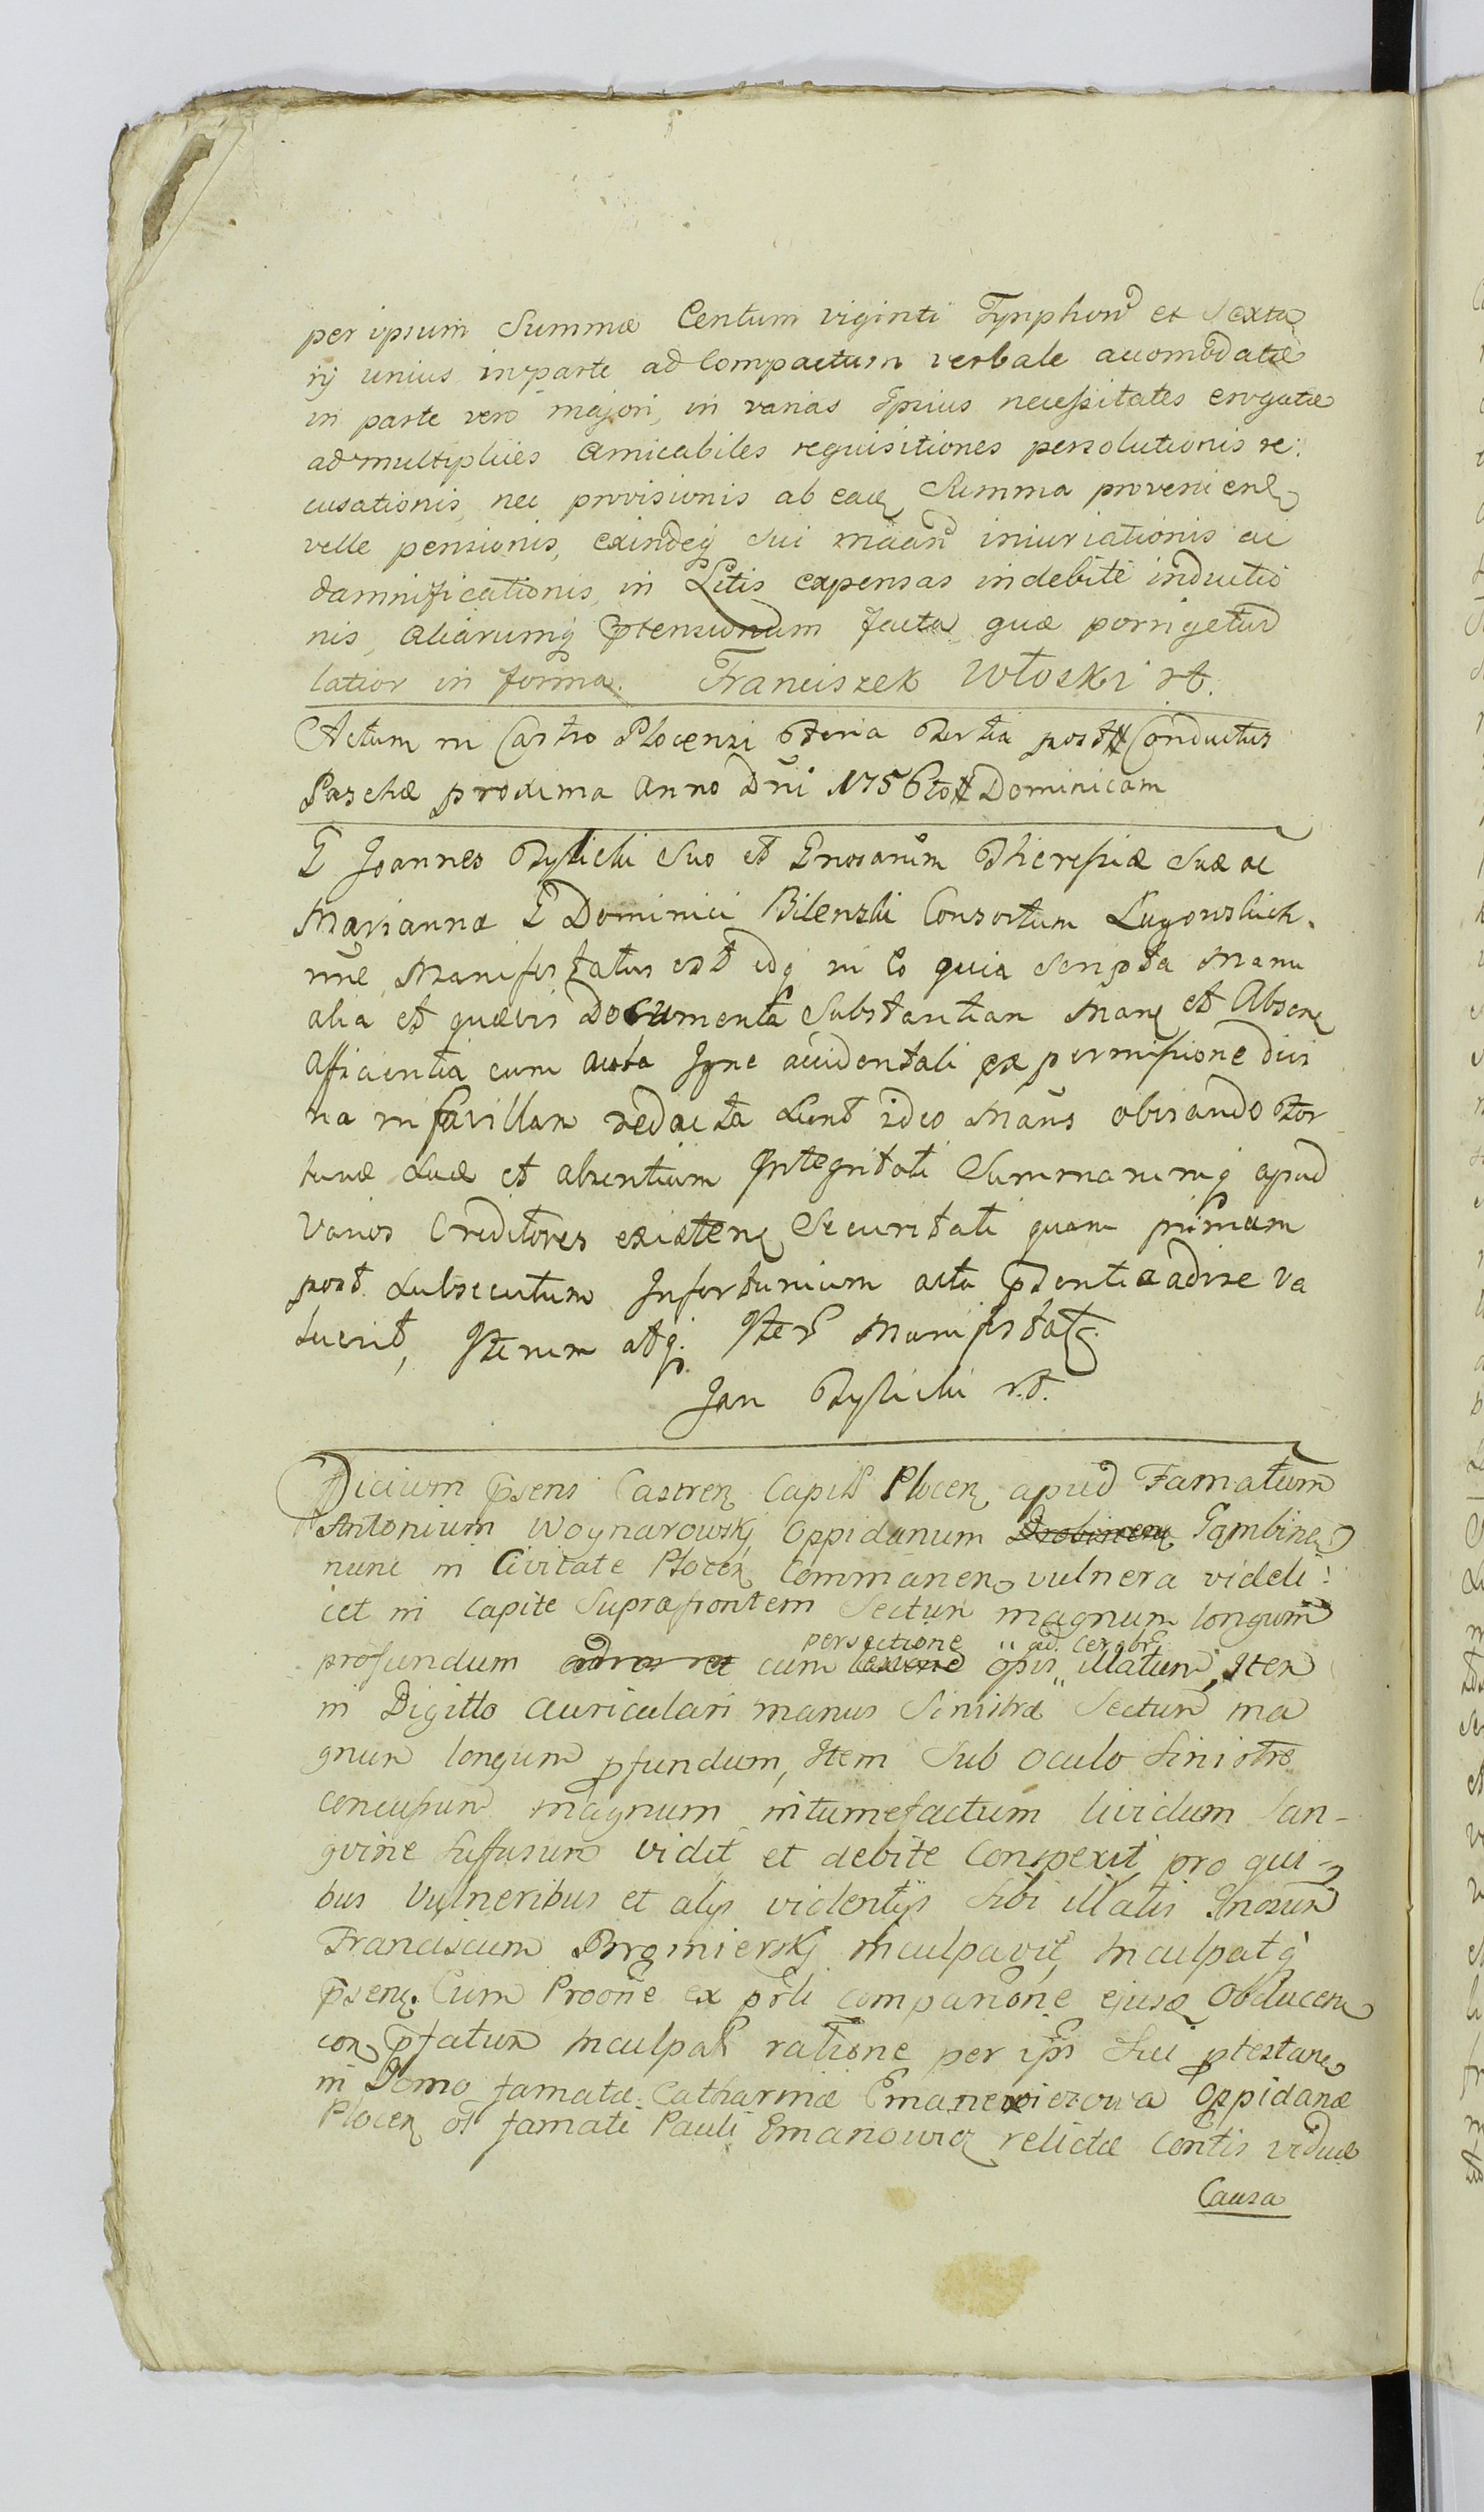 per ipsum Summæ Centum viginti Tynphonũ et Sexta
rÿ unius in parte ad Compactum verbale accomodatæ
in parte vero majori, in varias Ipsius necessitates erogatæ
ad multiplices amicabiles requisitiones persolutionis re:
cusationis, nec provisionis ab eadẽ Summa provenienť
velle pensionis, exindeq̃ Sui iniuriationis ac
damnificationis, in Litis expensas indebitè inductio
nis, aliarumq̃ p̃tensionum facta quæ porrigetur
latior in forma. Franciszek Włoski
Actum in Castro Plocensi Feria Tertia post # Conductus
Paschæ proxima Anno Dñi 1756to # Dominicam
G Joannes suo et Gnosarum Theresiæ Suæ ac
Mariannæ G Dominici Bilenski Consortum
nñe Manifestatus est idq̃ in Eo quia Scripta Manu
alia et quævis Documenta Substantiam et Absenť
afficientia cum Igne accidentali ex permissione divi
na in favillam redacta Sunt ideo obviando For
tunæ Suæ et absentium Integritati Summarumq̃ apud
Varios Creditores existenť Securitati quam primum
post Subsecutum Infortunium acta p̃sentia adire va
luerit, Iterum atq̃. Iter̃ Manifestatr̃.
Jan
Officium p̃sens Castrenť Capitť Plocenť apud Famatum
Antonium Woynarowskj Oppidanum Gambinenť
nunc in Civitate Plocenť Commanenť vulnera videli:
cet in Capite Supra frontem Sectum magnum longum
persectione " ad cerebrũ
profundum cum illatum, Item
in Digitto auriculari manus Sinistræ Sectum ma
gnum longum p̃fundum, Item Sub oculo Sinistro
concussum magnum intumefactum lividum San-
guine Suffusum vidit et debite Conspexit, pro qui-
bus Vulneribus et alijs violentijs Sibi illatis Gnosum
Franciscum inculpavit, inculpatq̃
p̃senť. Cum ex comparitione ejusdẽ Obducenť
con p̃fatum inculpať ratione per ip̃m Sui p̃testanť
in Domo famatæ Catharinæ Oppidanæ
Plocenť famati Pauli Emanowicz relictæ Contis viduæ
Causa